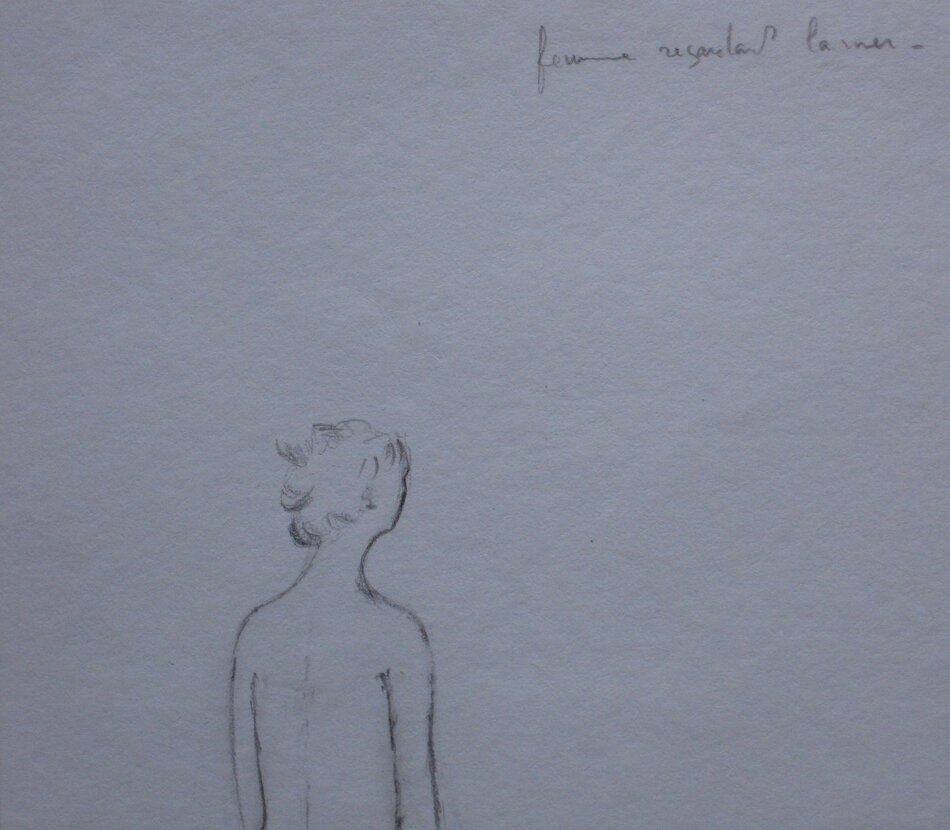 femme regardant la mer -